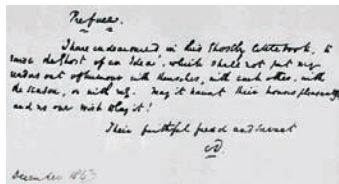 Preface.
I have endeavoured in this Ghostly little book, to
raise the Ghost of an Idea, which shall not put my
readers out of humour with themselves, with each other, with
the season, or with me. May it haunt their houses pleasantly
and no one wish to lay it!
Their faithful friend and servant
CD.
December 1843